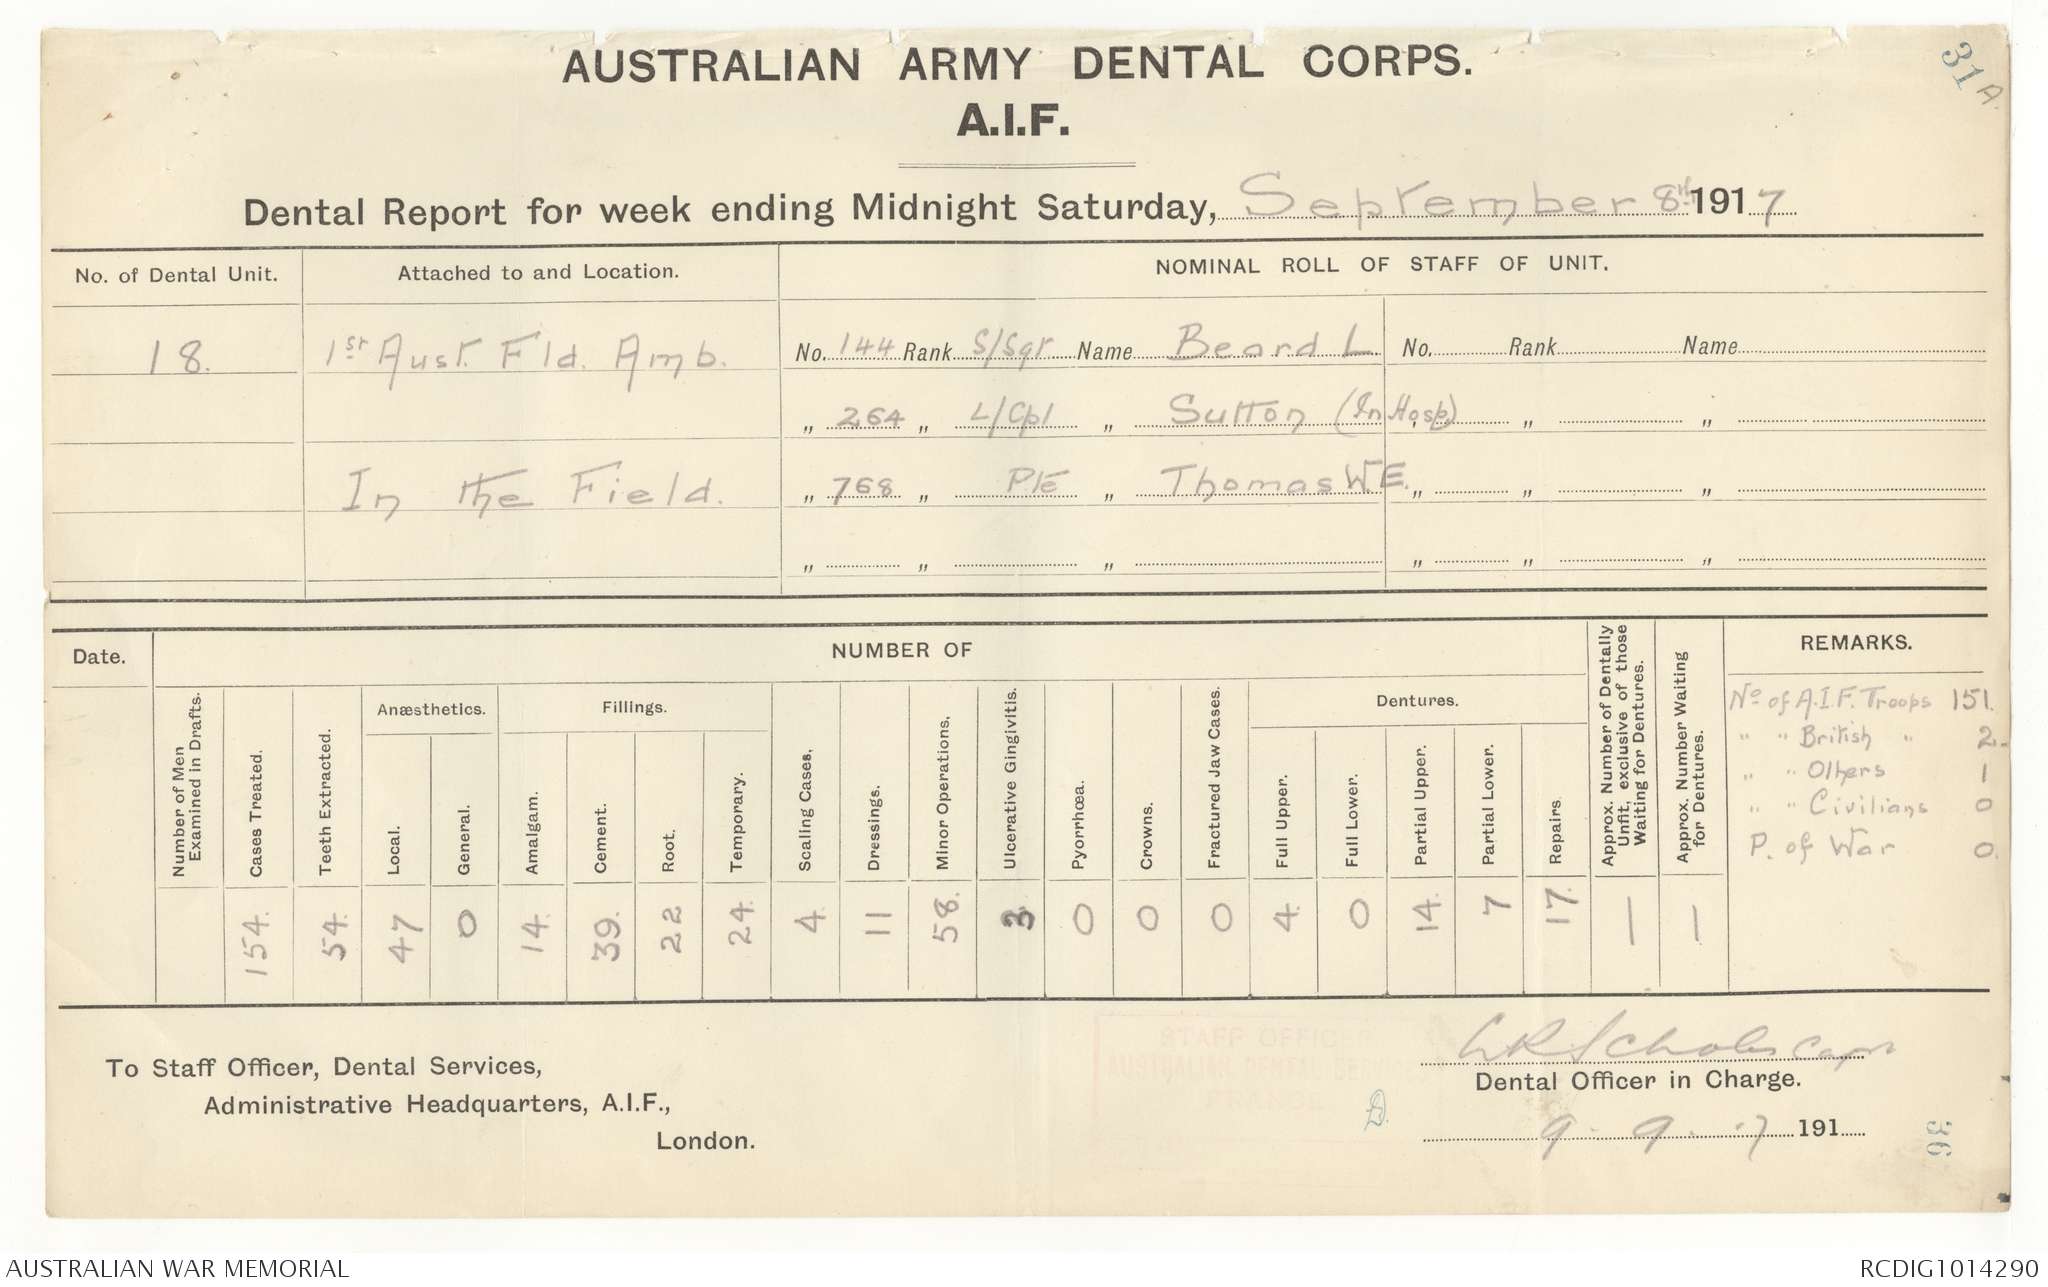 31A
AUSTRALIAN ARMY DENTAL CORPS.
A.I.F.
Dental Report for week ending Midnight Saturday, September 8th 1917
No. of Dental Unit.
Attached to and Location.
NOMINAL ROLL OF STAFF OF UNIT.
18.
1st Aust. Fld. Amb.
In the Field.
No. 144 Rank S/Sgt Name Beard L
" 264 " L/Cpl " Sutton (In Hosp)
" 768 " Pte " Thomas W.E.
" " "
No. Rank Name
" " "
" " "
" " "
Date.
NUMBER OF
REMARKS.
Number of Men Examined in Drafts.
Cases Treated. 154.
Teeth Extracted. 54.
Anæsthetics.
Local. 47
General. 0
Fillings.
Amalgam. 14
Cement. 39.
Root. 22
Temporary. 24.
Scaling Cases. 4
Dressings. 11
Minor Operations. 58.
Ulcerative Gingivitis. 3.
Pyorrhœa. 0
Crowns. 0
Fractured Jaw Cases. 0
Dentures.
Full Upper. 4.
Full Lower. 0
Partial Upper. 14.
Partial Lower. 7
Repairs. 17.
Approx. Number of Dentally Unfit, exclusive of those Waiting for Dentures. —
Approx. Number Waiting for Dentures. —
No of A.I.F. Troops 151.
" " British " 2.
" " Others 1
" " Civilians 0
P. of War 0.
To Staff Officer, Dental Services,
Administrative Headquarters, A.I.F.,
London.
STAFF OFFICER
AUSTRALIAN DENTAL SERVICES
FRANCE
Capt
Dental Officer in Charge.
9. 9. 17 191
36
AUSTRALIAN WAR MEMORIAL
RCDIG1014290